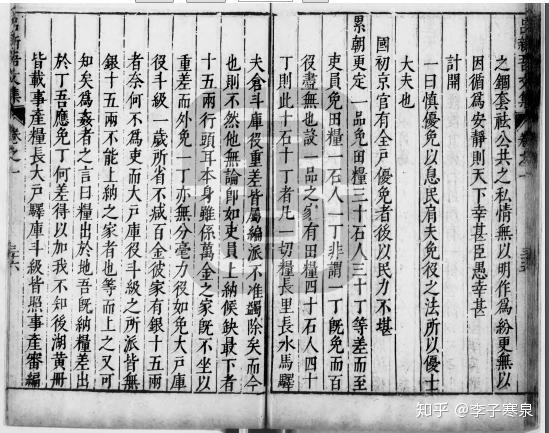 之錮奎祛公共之私情無以明作為紛更無以
因循為安靜則天下幸甚臣愚幸甚
計開
一曰慎優免以息民肩夫免役之法所以優士
大夫也
國初京官有全戶優免者後以民力不堪
累朝更定一品免田糧三十石人三十丁等差而至
吏員免田糧一石人一丁非謂一丁既免而百
役盡無也設一品之家有田糧四十石人四十
丁則此十石十丁者凡一切糧長里長水馬驛
夫倉斗庫役重差皆屬編派不准蠲除矣而今
也則不然他無論即如吏員上納候缺最下者
十五兩行頭耳本身雖係萬金之家既不坐以
重差而外免一丁亦無分毫力役如免大戶庫
役斗級一歲所省不減百金彼家有銀十五兩
者奈何不為吏而大戶庫役斗級之所派皆無
銀十五兩不能上納之家者也等而上之又可
知矣為姦者之言曰糧出於地吾既納糧差出
於丁吾應免丁何差得以加我不知後湖黃冊
皆載事產糧長大戶驛庫斗級皆照事產審編
卷之一
三六
知乎 @李子寒泉